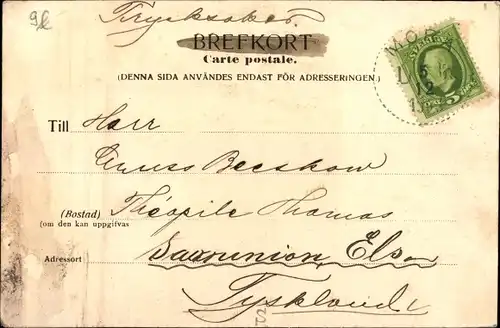 92
Trycksaker.
BREFKORT
Carte postale.
(DENNA SIDA ANVÄNDES ENDAST FÖR ADRESSERINGEN.)
MORA
5
12
Till Herr
Beeskow
(Bostad) Théopile Thomas
(om den kan uppgifvas
Adressort) Saarunion, Els.
Tyskland